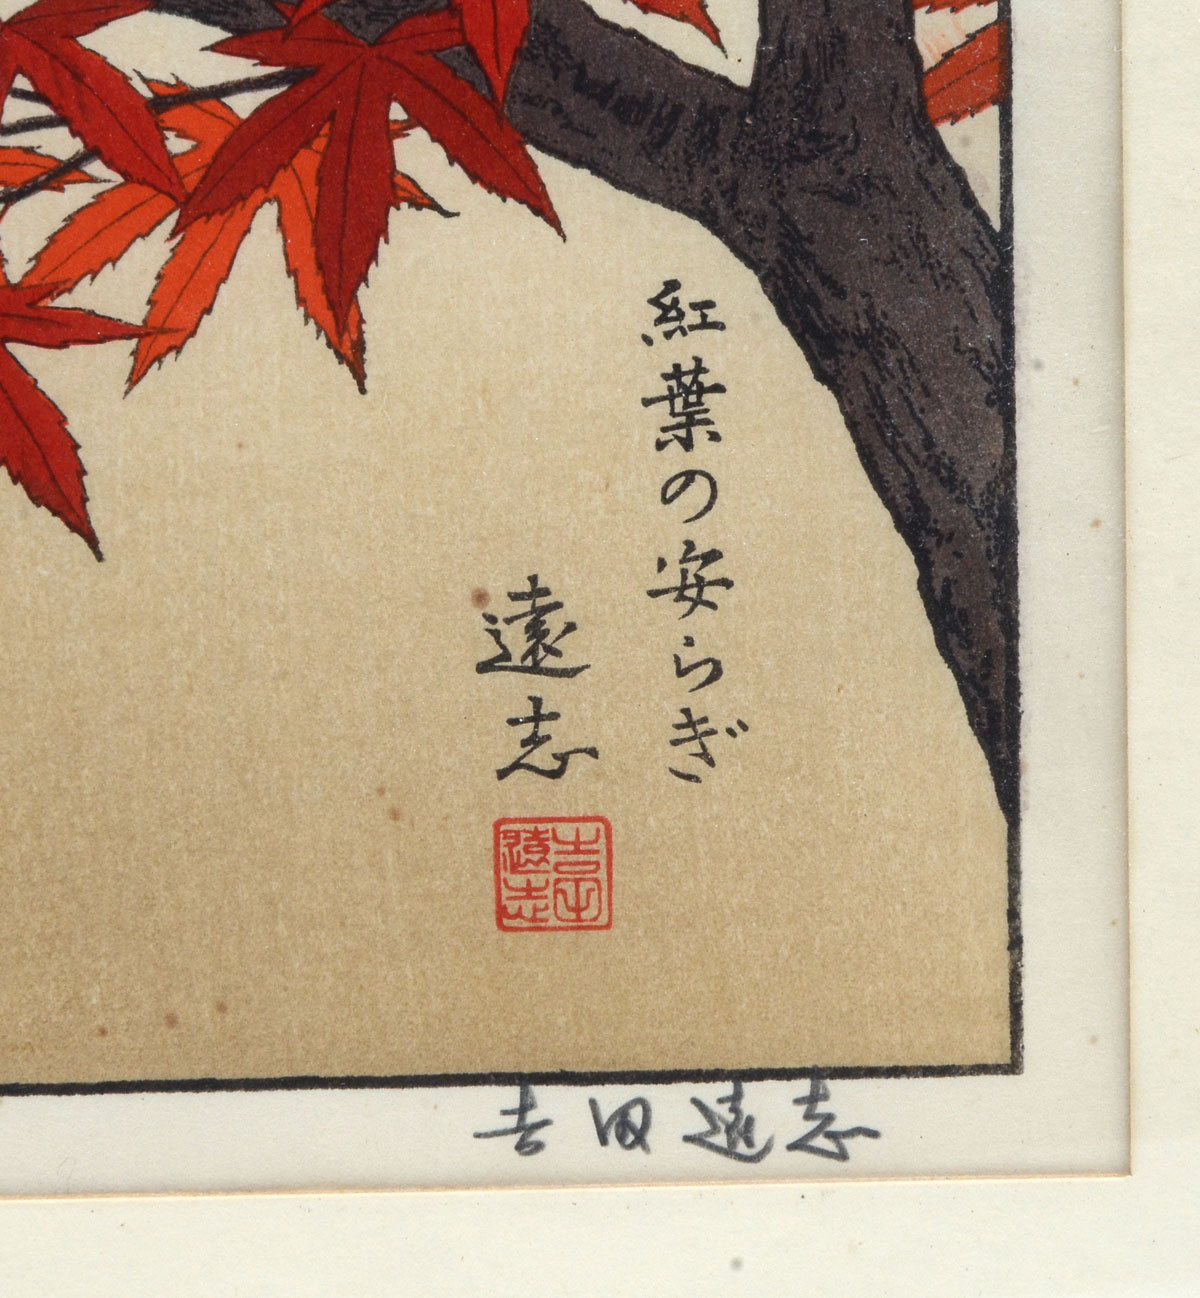 紅葉の安らぎ
遠志
吉田遠志
吉田遠志